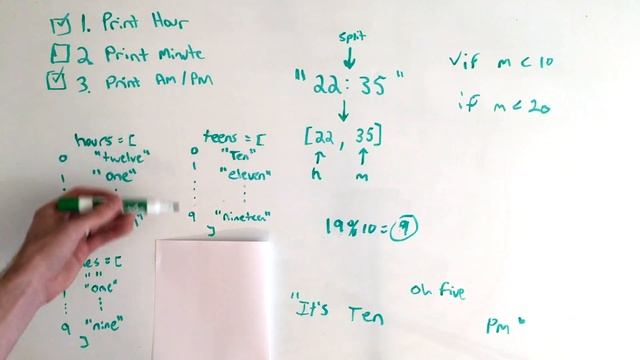 1. Print Hour
2 Print Minute
3. Print Am/PM
split
"22:35"
[22, 35]
h m
√if m < 10
if m < 20
hours = [
0 "twelve"
1 "one"
teens = [
0 "Ten"
1 "eleven"
9 "nineteen"
]
= [
" "
"one"
9 "nine"
]
19%10 = 9
"It's Ten
oh five
pm"